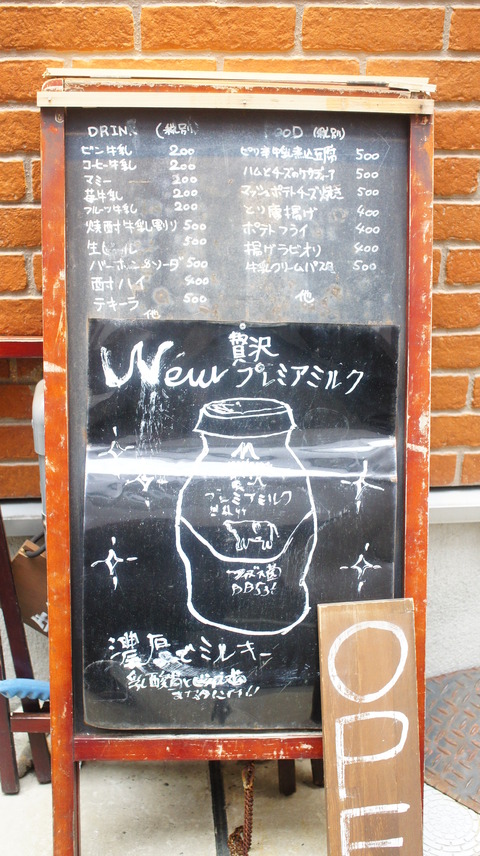 DRINK (税別)
ビン牛乳 200
コーヒー牛乳 200
マミー 200
苺牛乳 200
フルーツ牛乳 200
焼酎牛乳割り 500
生ビール 500
バーボン&ソーダ 500
酎ハイ 400
テキーラ 500
他
FOOD (税別)
ピリ辛牛乳煮込豆腐 500
ハムとチーズの 500
マッシュポテトチーズ焼き 500
とり唐揚げ 400
ポテトフライ 400
揚げラビオリ 400
牛乳クリームパスタ 500
他
贅沢
New プレミアミルク
プレミアミルク
BB536
濃厚でミルキー
乳酸菌とビフィズス菌
OPE